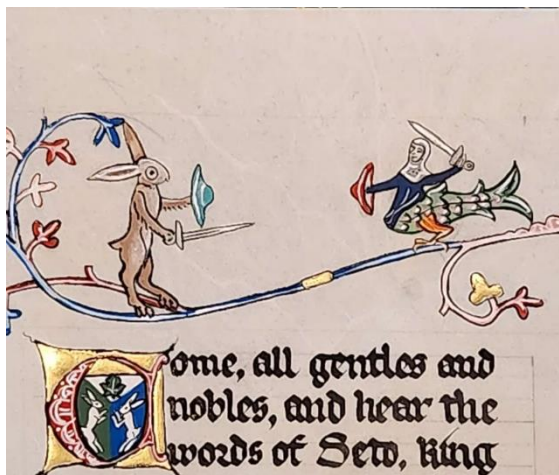 Come, all gentles and
nobles, and hear the
words of Seto, King